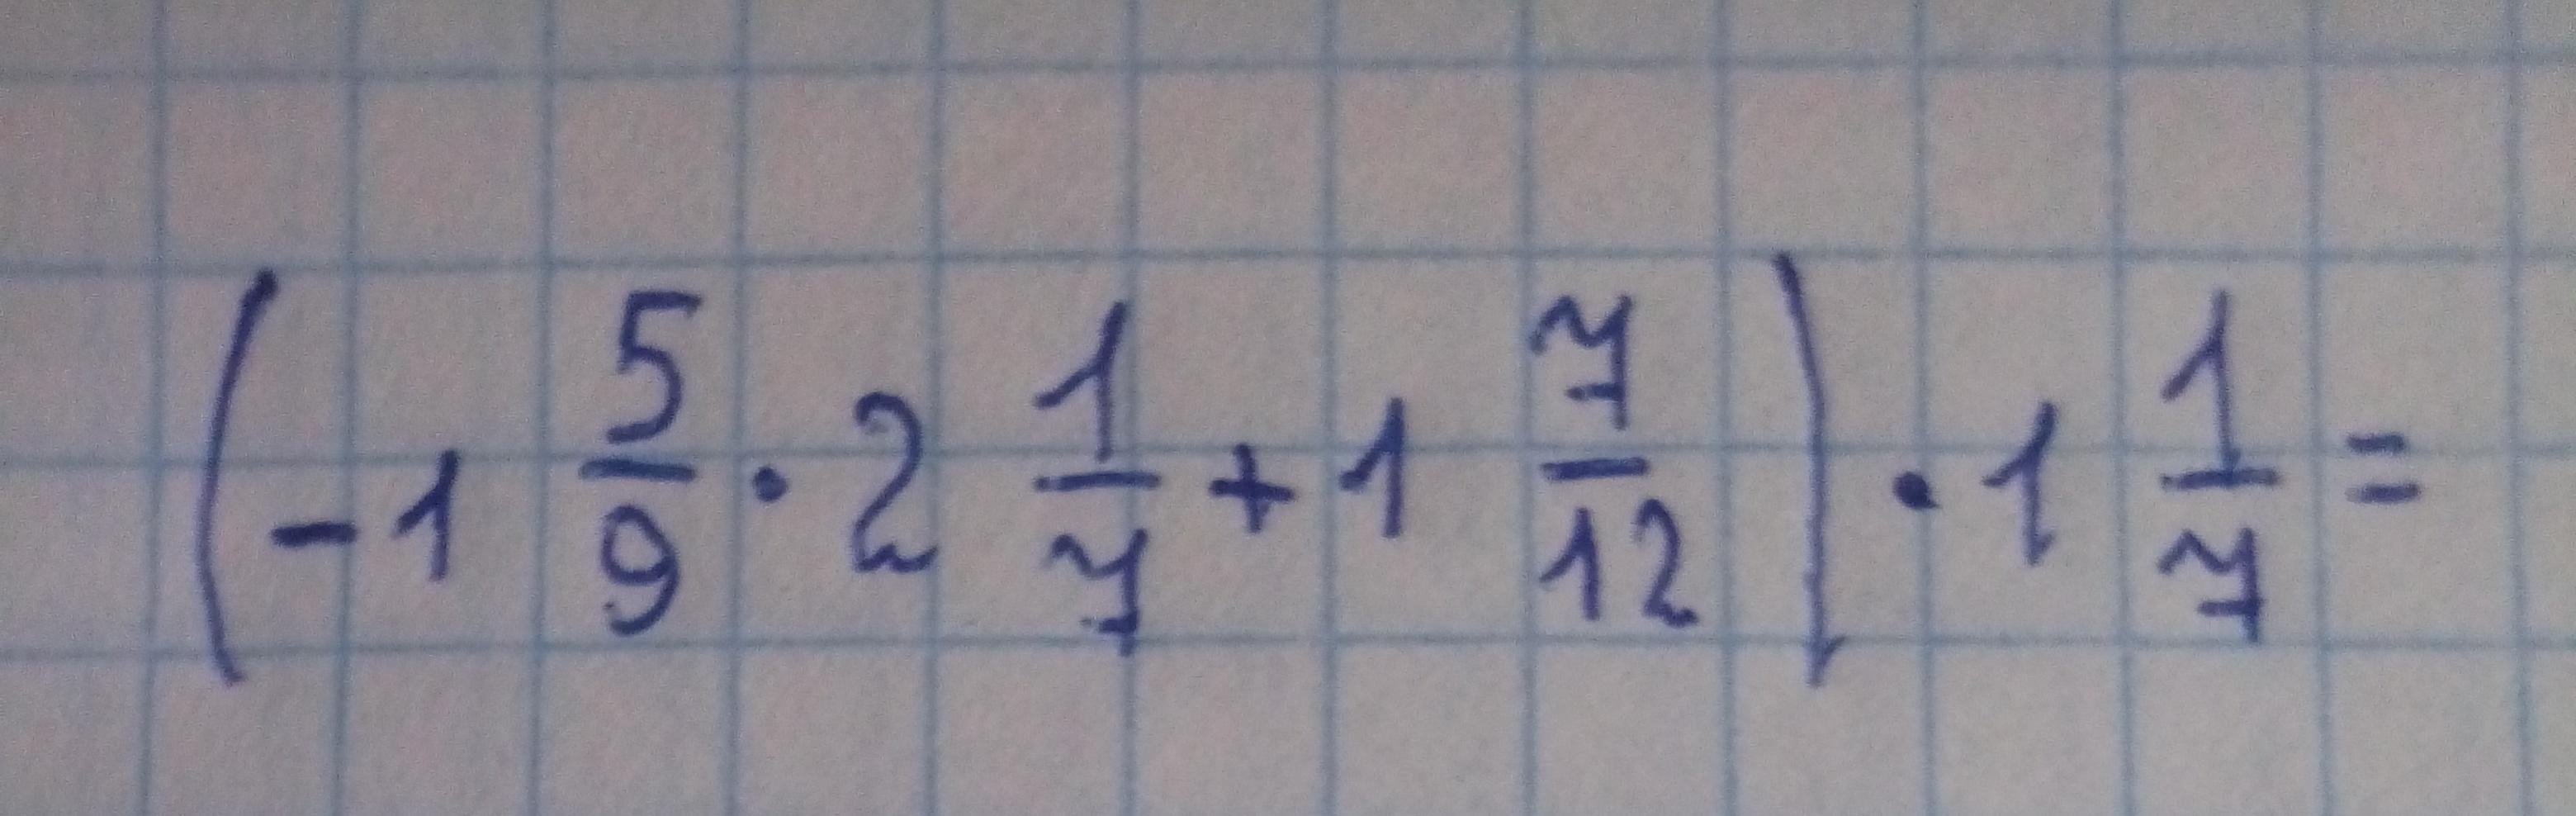 (-1 5/9 · 2 1/7 + 1 7/12) · 1 1/7 =